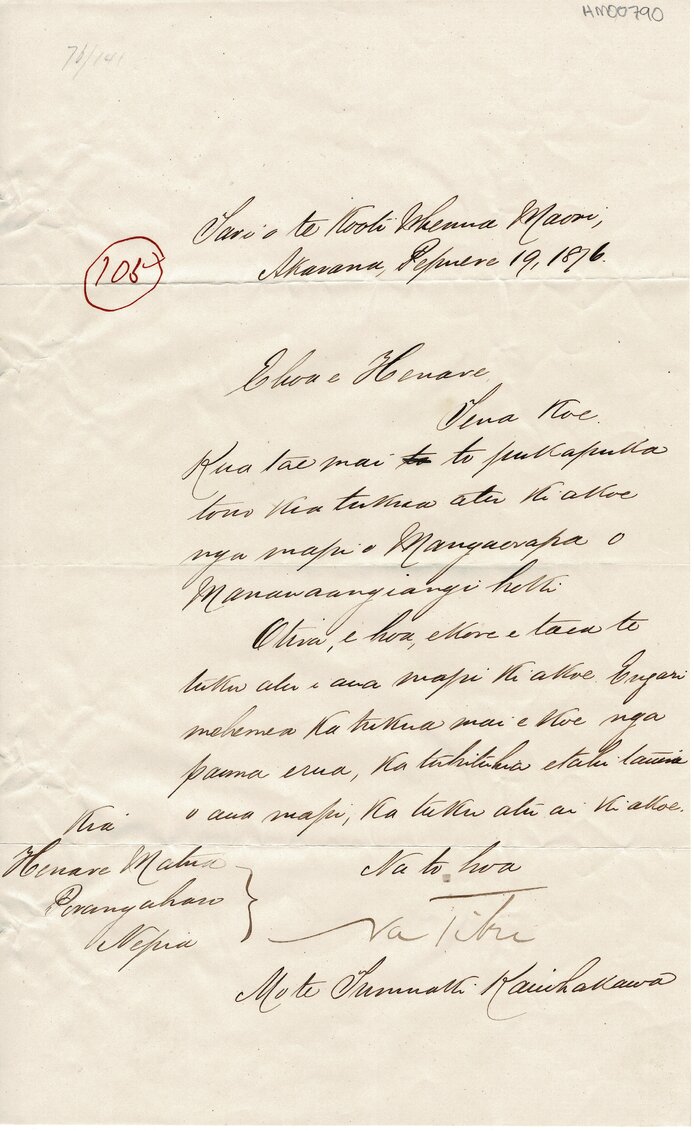 HM00790
76/141
Tari o te Kooti Whenua Maori,
Akarana, Pepuere 19, 1876.
105
E hoa e Henare
Tena Koe.
Kua tae mai to to pukapuka
tono kia tukua atu ki a koe
nga mapi o Mangaorapa o
Manawaangiangi hoki
Otira, e hoa, e kore e taea te
tuku atu i aua mapi ki a koe. Engari
mehemea ka tukua mai e koe nga
pauna erua, ka tuhituhia etahi tauira
o aua mapi, ka tuku atu ai ki a koe.
Kia
Henare Matua
Porangahau
Nepia
Na to hoa
Na
Mo te Tumuaki Kaiwhakawa